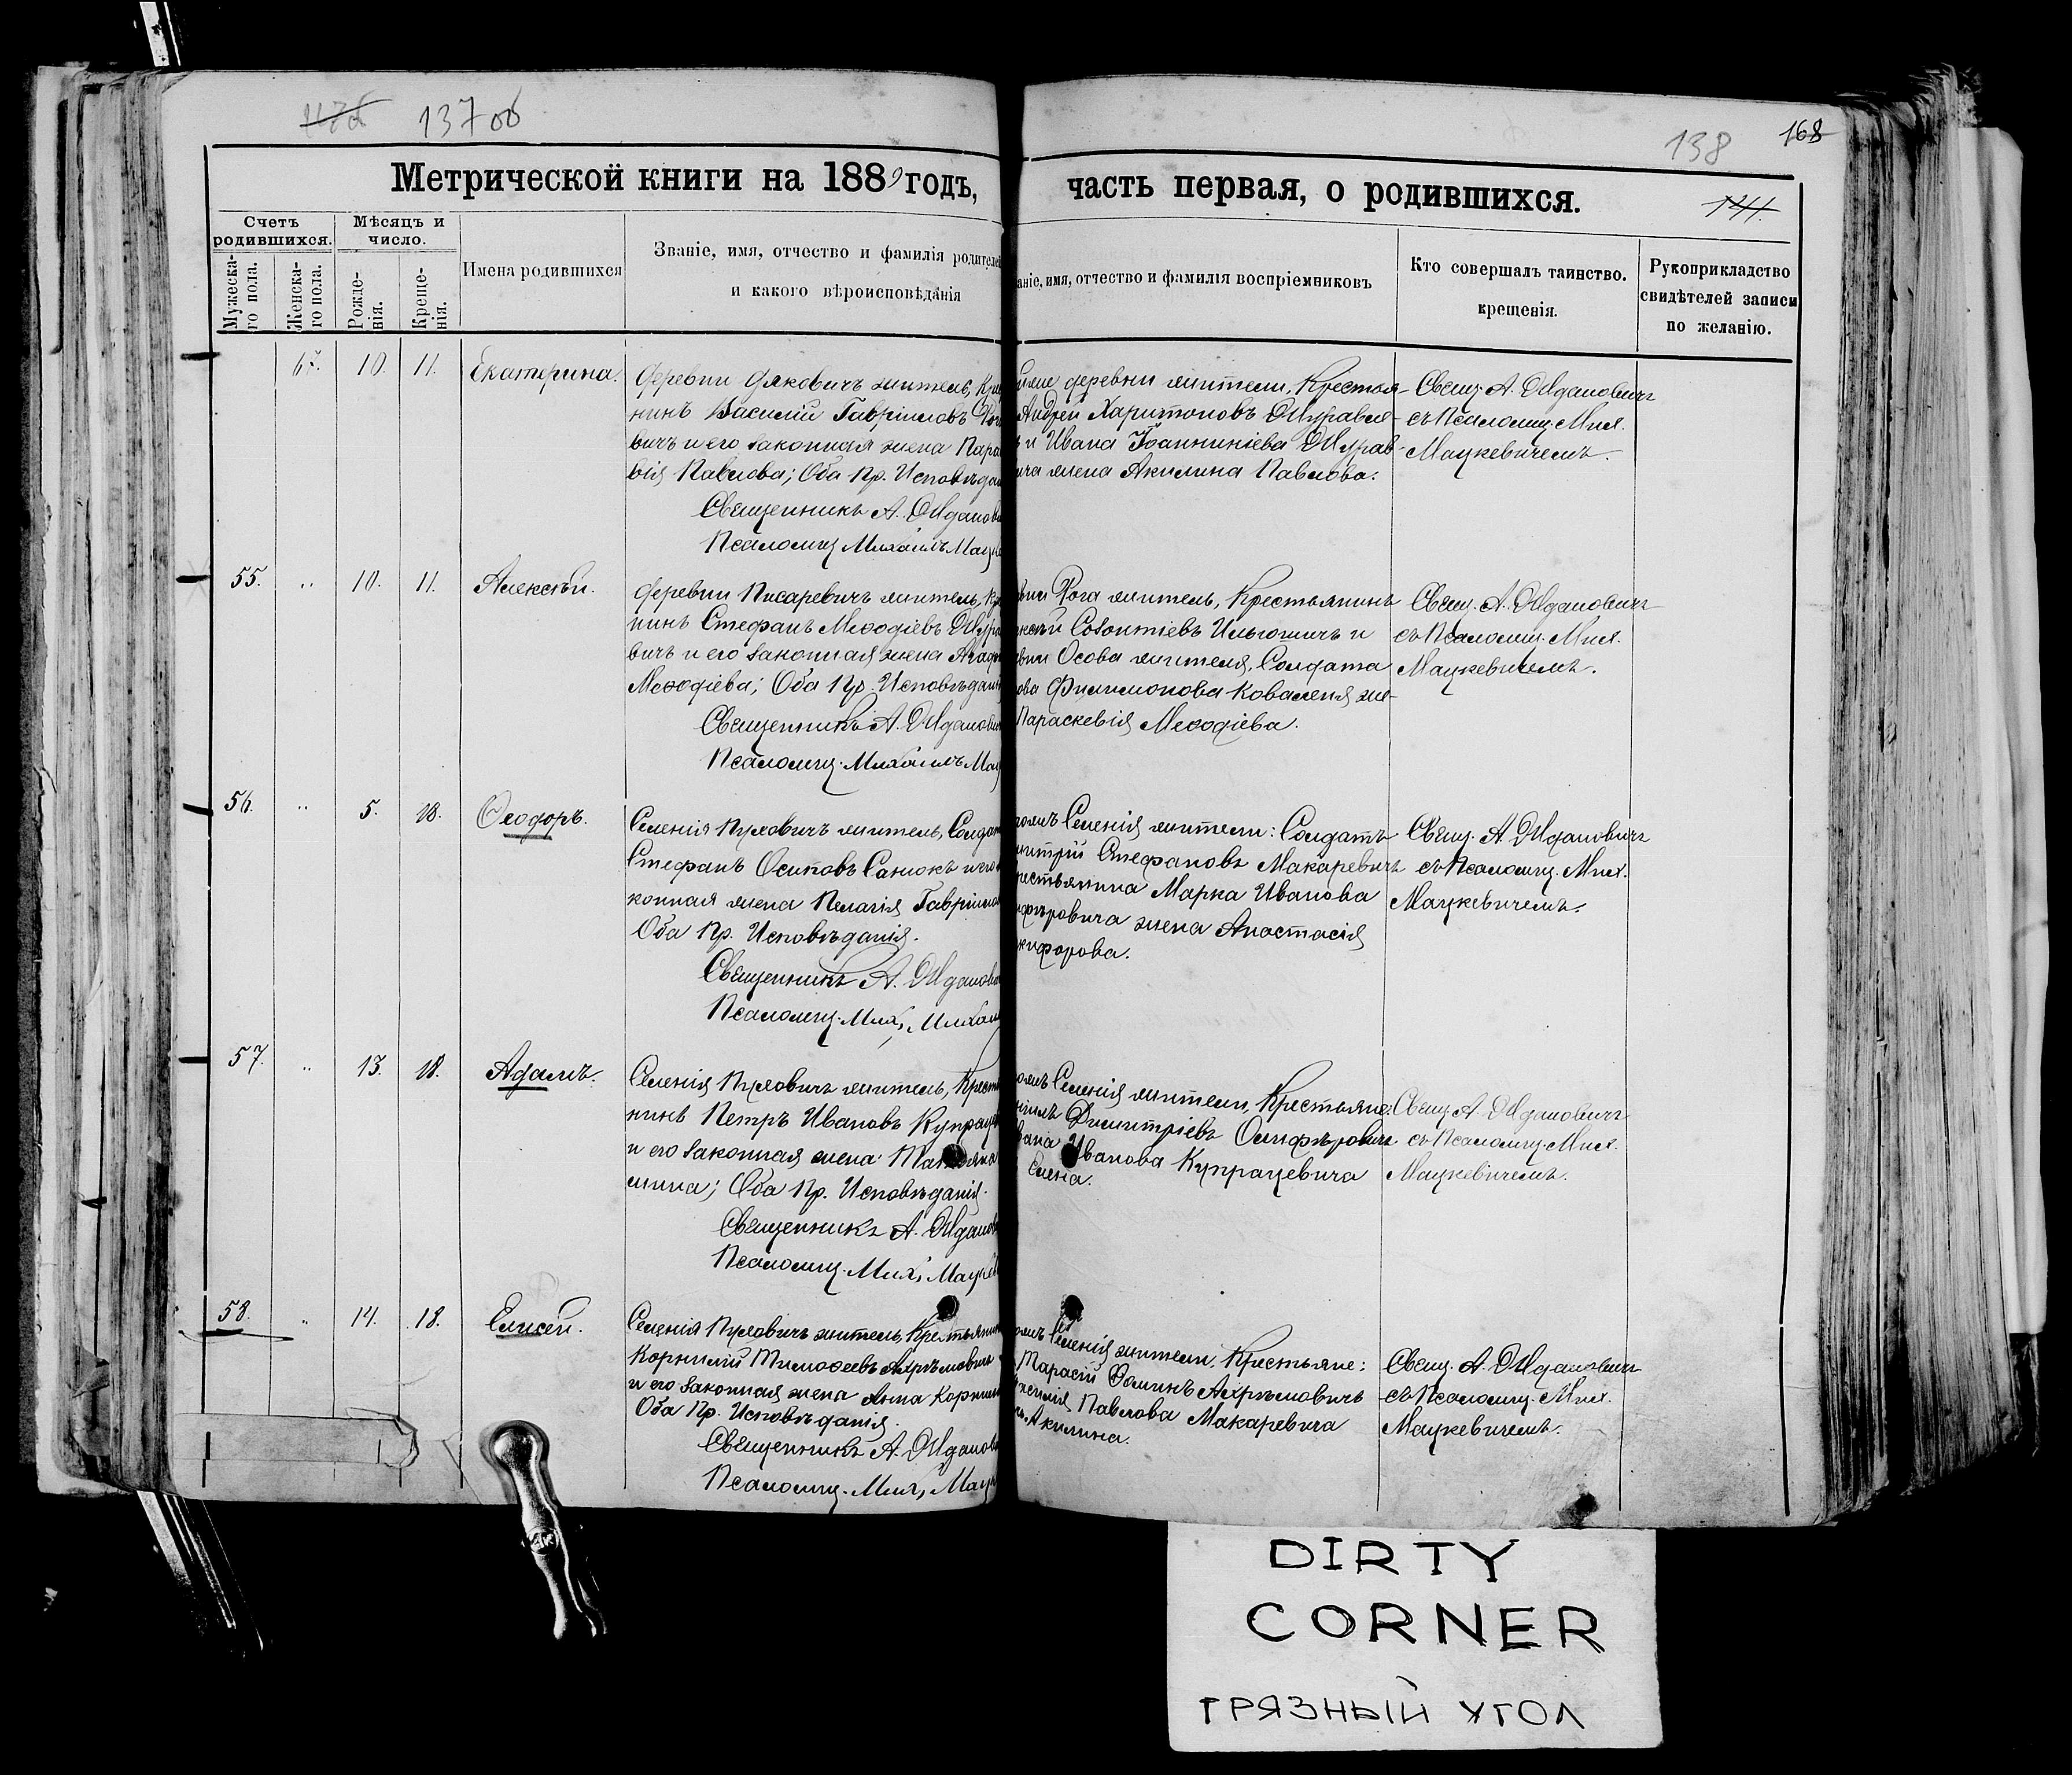 137 об
138
168
Метрической книги на 1889 годъ,
часть первая, о родившихся.
Счетъ родившихся.
Мѣсяцъ и число.
Мужеска-го пола.
Женска-го пола.
Рожде-нія.
Креще-нія.
Имена родившихся
Званіе, имя, отчество и фамилія родителей
и какого вѣроисповѣданія
аніе, имя, отчество и фамилія воспріемниковъ
Кто совершалъ таинство.
крещенія.
Рукоприкладство
свидѣтелей записи
по желанію.
10. 11. Екатерина.
Деревни житель, Кре
нинъ Василій Гавріиловъ
вичъ и его законная жена Пара
вія Павлова; Оба Пр. Исповѣдан
Священникъ А.
Псаломщ Михаилъ Мацк
деревни жители, Крестья-
Андрей Харитоновъ Журавле-
и Ивана Журав-
ича жена Акилина Павлова.
Свящ. А.
съ Псаломщ. Мих.
Мацкевичемъ.
55. „ 10. 11. Алексѣй.
Деревни Писаревичъ житель, Кр
нинъ Стефанъ Меѳодіевъ
вичъ и его законная жена Агаф
Меѳодіева; Оба Пр. Исповѣдані
Священникъ А.
Псаломщ. Михаилъ Мац
вни Рога житель, Крестьянинъ
Созонтіевъ Ильюшичъ и
вни Осова жителя, Солдата
ова Филимонова Коваленя же-
Параскевія Меѳодіева.
Свящ. А.
съ Псаломщ. Мих.
Мацкевичемъ.
56. „ 5. 18. Ѳеодоръ.
Селенія Пуховичъ житель, Солдат
Стефанъ Осиповъ Санюкъ и его
конная жена Пелагія Гавріилов
Оба Пр. Исповѣданія.
Священникъ А.
Псаломщ. Мих.
Селенія жители: Солдатъ
митрій Стефановъ Макаревичъ
рестьянина Марка Иванова
жена Анастасія
кифорова.
Свящ. А.
съ Псаломщ. Мих.
Мацкевичемъ.
57. „ 13. 18. Адамъ.
Селенія Пуховичъ житель, Кресть
нинъ Петръ Ивановъ Купрацев
и его законная жена
мина; Оба Пр. Исповѣданія.
Священникъ А.
Псаломщ. Мих. Мацкев
Селенія жители, Крестьяне:
Димитріевъ
Иванова Купрацевича
Елена.
Свящ. А.
съ Псаломщ. Мих.
Мацкевичемъ.
58. „ 14. 18. Елисей.
Селенія Пуховичъ житель, Крестьянин
Корнилій Тимоѳеевъ Ахрѣмовичъ
и его законная жена Анна Корнил
Оба Пр. Исповѣданія.
Священникъ А.
Псаломщ. Мих. Мацк
Селенія жители, Крестьяне:
Тарасій Ѳоминъ Ахрѣмовичъ
Павлова Макаревича
Акилина.
Свящ. А.
съ Псаломщ. Мих.
Мацкевичемъ.
DIRTY
CORNER
ГРЯЗНЫЙ УГОЛ